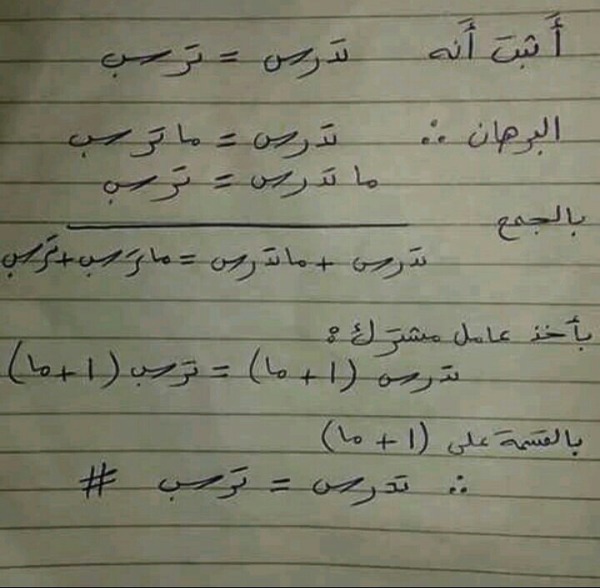 أَثبتَ أَنه تدرس = ترسب
البرهان ∵ تدرس = ما ترسب
ما تدرس = ترسب
بالجمع
تدرس + ما تدرس = ما ترسب + ترسب
بأخذ عامل مشترك:
تدرس (1 + ما) = ترسب (1 + ما)
بالقسمة على (1 + ما)
∴ تدرس = ترسب #